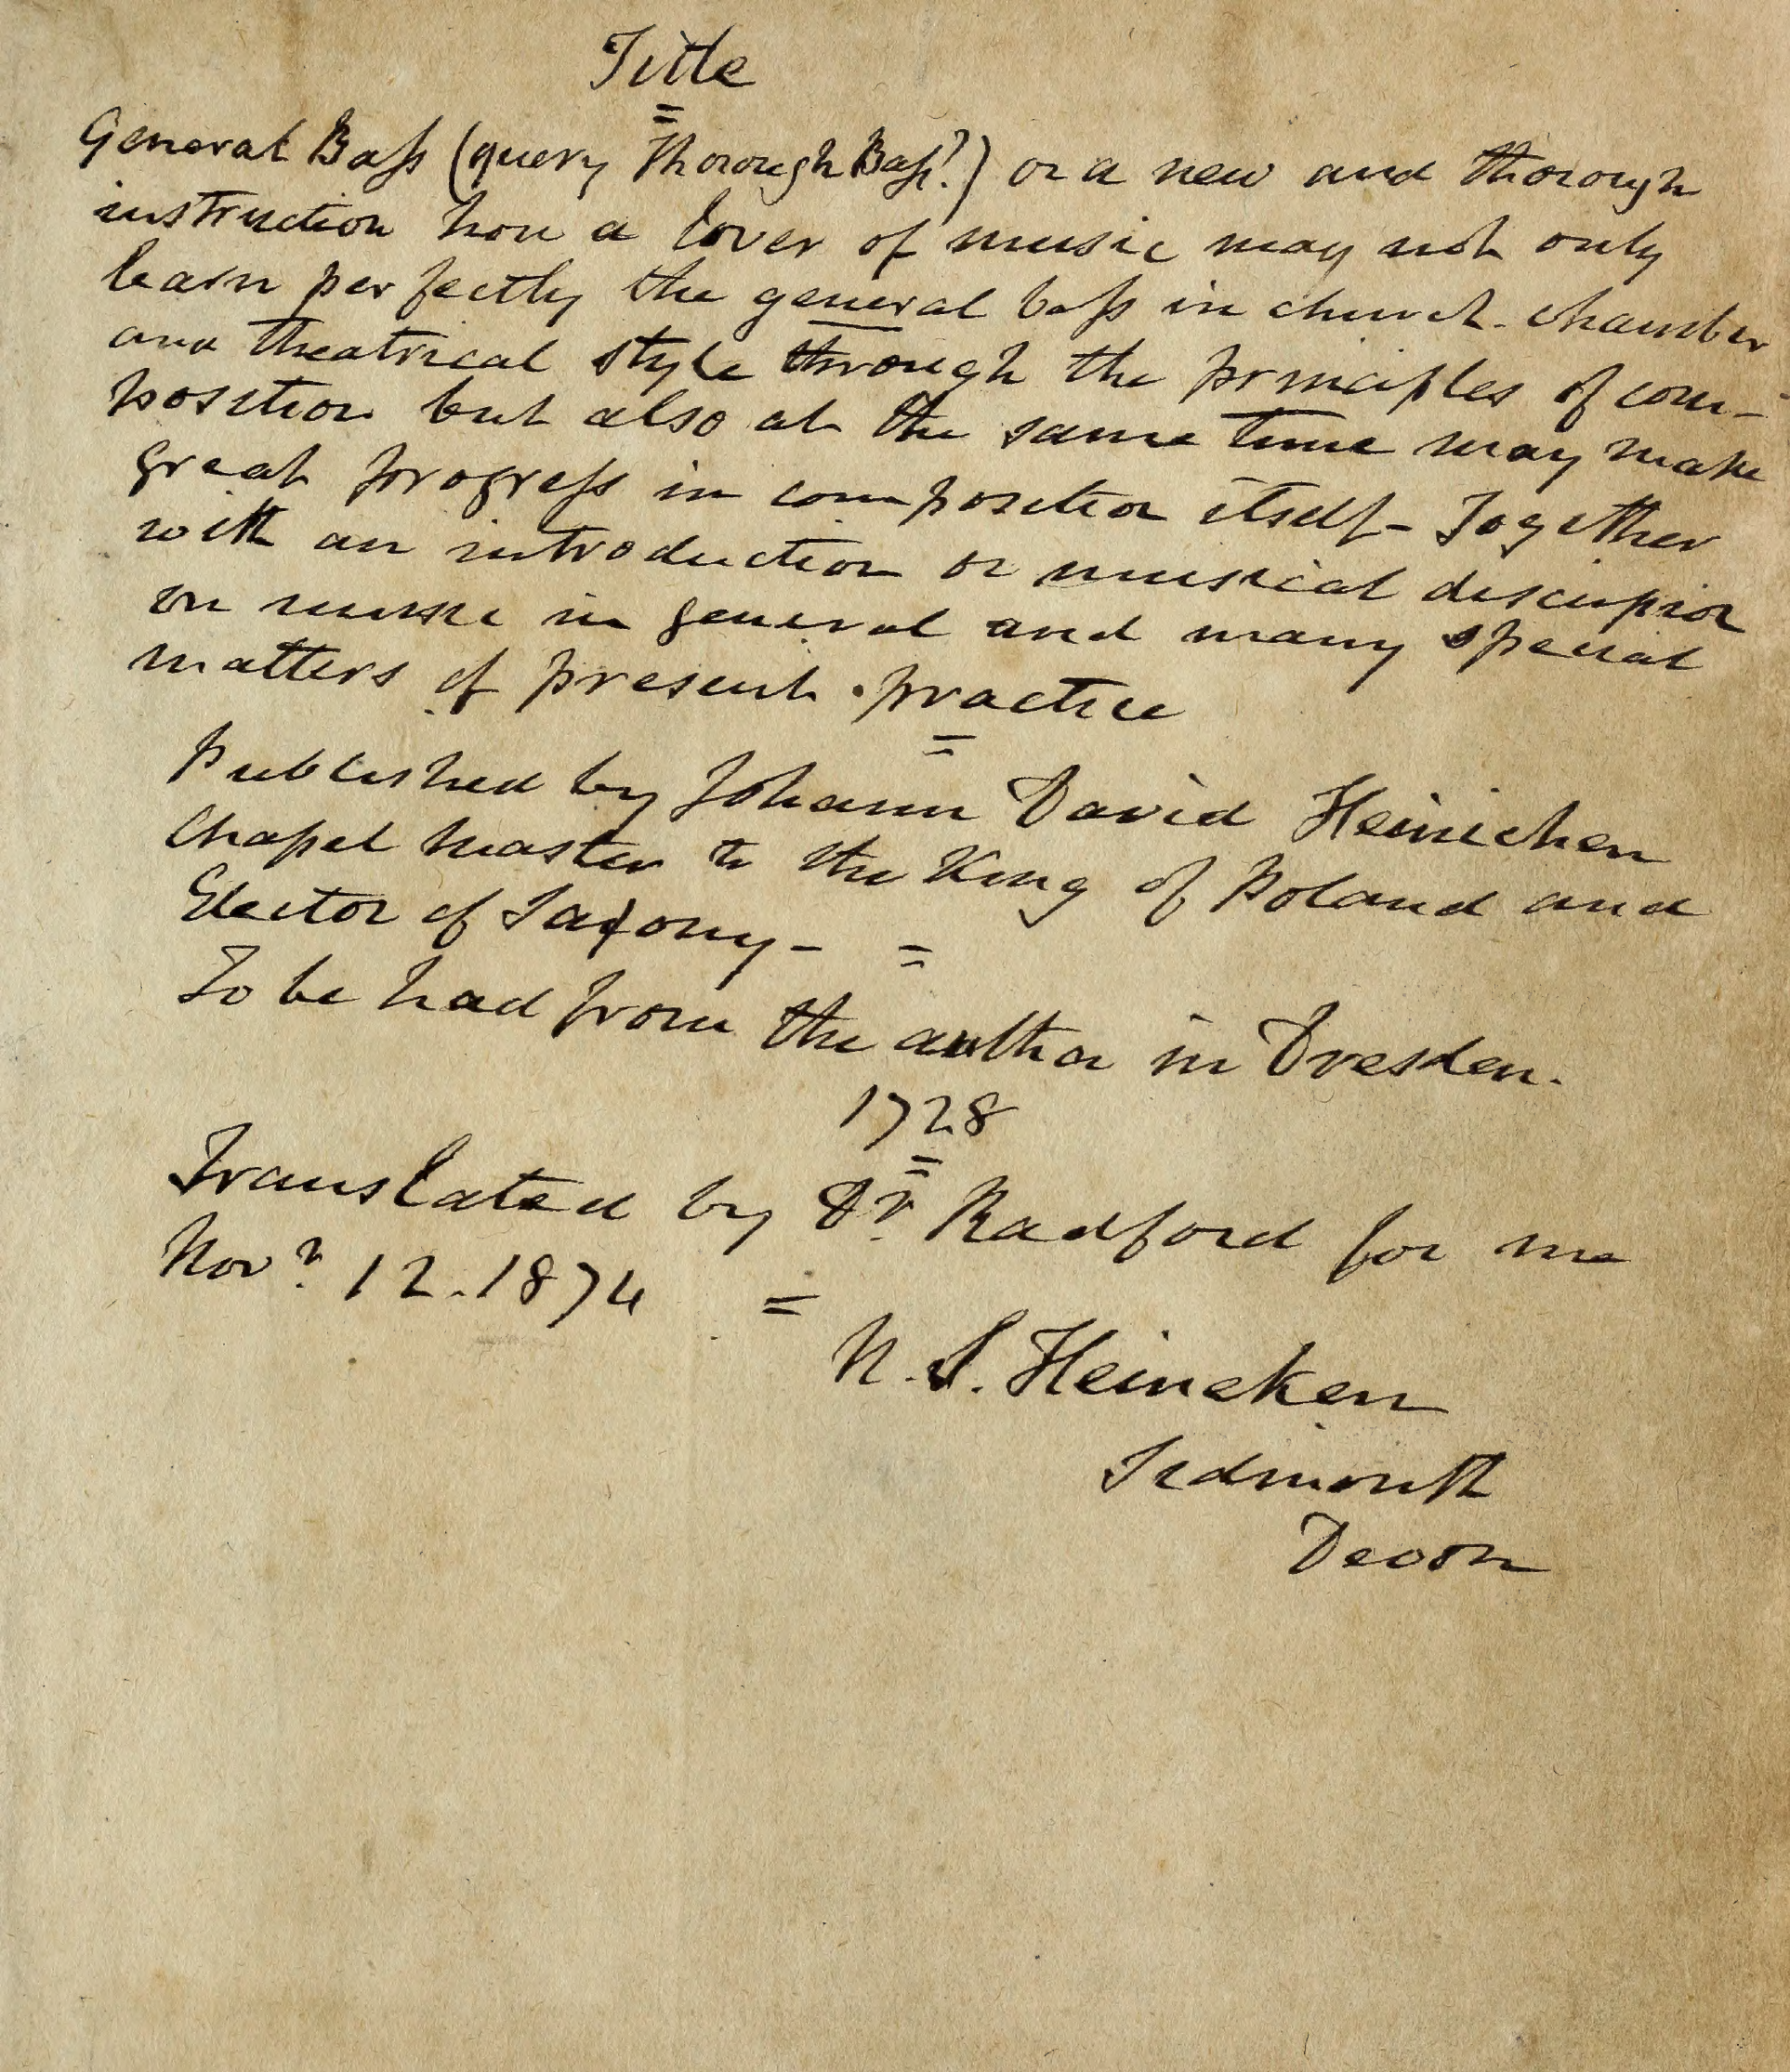 Title
General Bass (query Thorough Bass?) or a new and thorough
instruction how a lover of music may not only
learn perfectly the general bass in church. chamber
and theatrical style through the principles of com-
position but also at the same time may make
great progress in composition itself - Together
with an introduction or musical discussion
on music in general and many special
matters of present practice
Published by Johann David Heinichen
Chapel master to the King of Poland and
Elector of Saxony -
To be had from the author in Dresden.
1728
Translated by Dr. Radford for me
Novr. 12. 1874
N. S. Heineken
Sidmouth
Devon